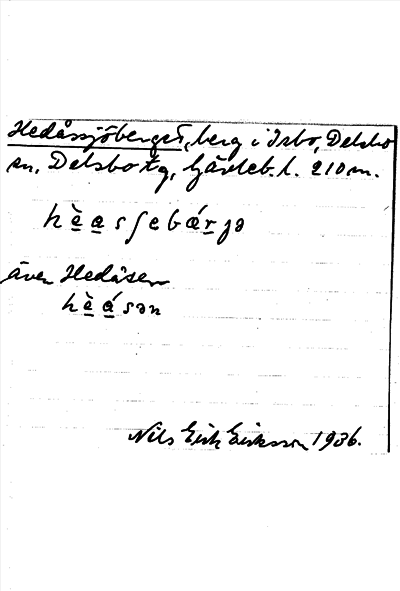 Hedåssjöberget, berg i Isbo, Delsbo
sn, Delsbo tg, Gävleb. l. 210 m.
hèas∫ebárjə
även Hedåsen
hèásən
Nils Erik Eriksson 1936.